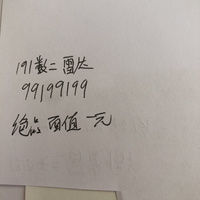 191数二雷达
99199199
绝品 面值 一元